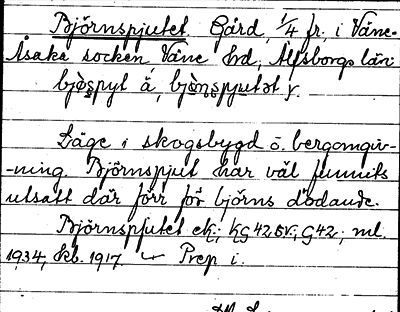 Björnspjutet. Gård, 1/4 fr., i Väne-
Åsaka socken Väne hd, Älfsborgs län
bjö̀ṣpyt ä, bjö̀nṣpjutət y.
Läge i skogsbygd o. bergomgiv-
-ning. Björnspjut har väl funnits
utsatt där förr för björns dödande.
Björnspjutet ek; KG 42 Bv; G 42; ml.
1934, kb. 1917. Prep i.